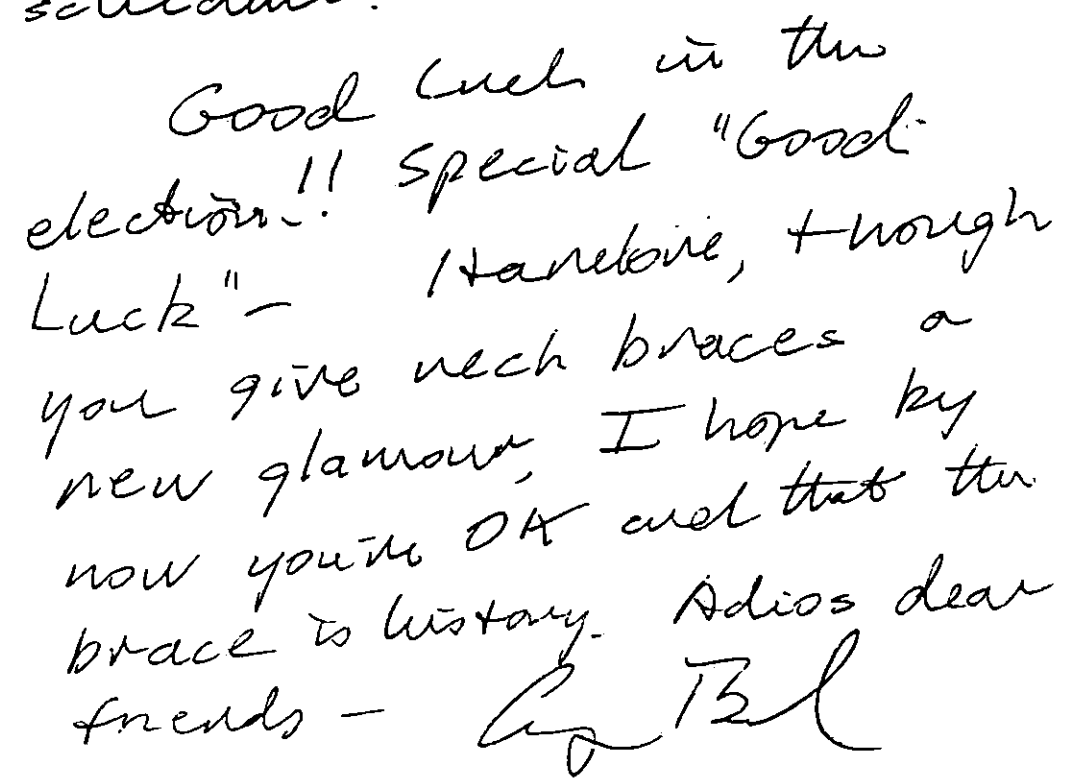 Good luck in the
election!! Special "Good
Luck" – Hanelore, though
you give neck braces a
new glamour, I hope by
now you're OK and that the
brace is history. Adios dear
friends –